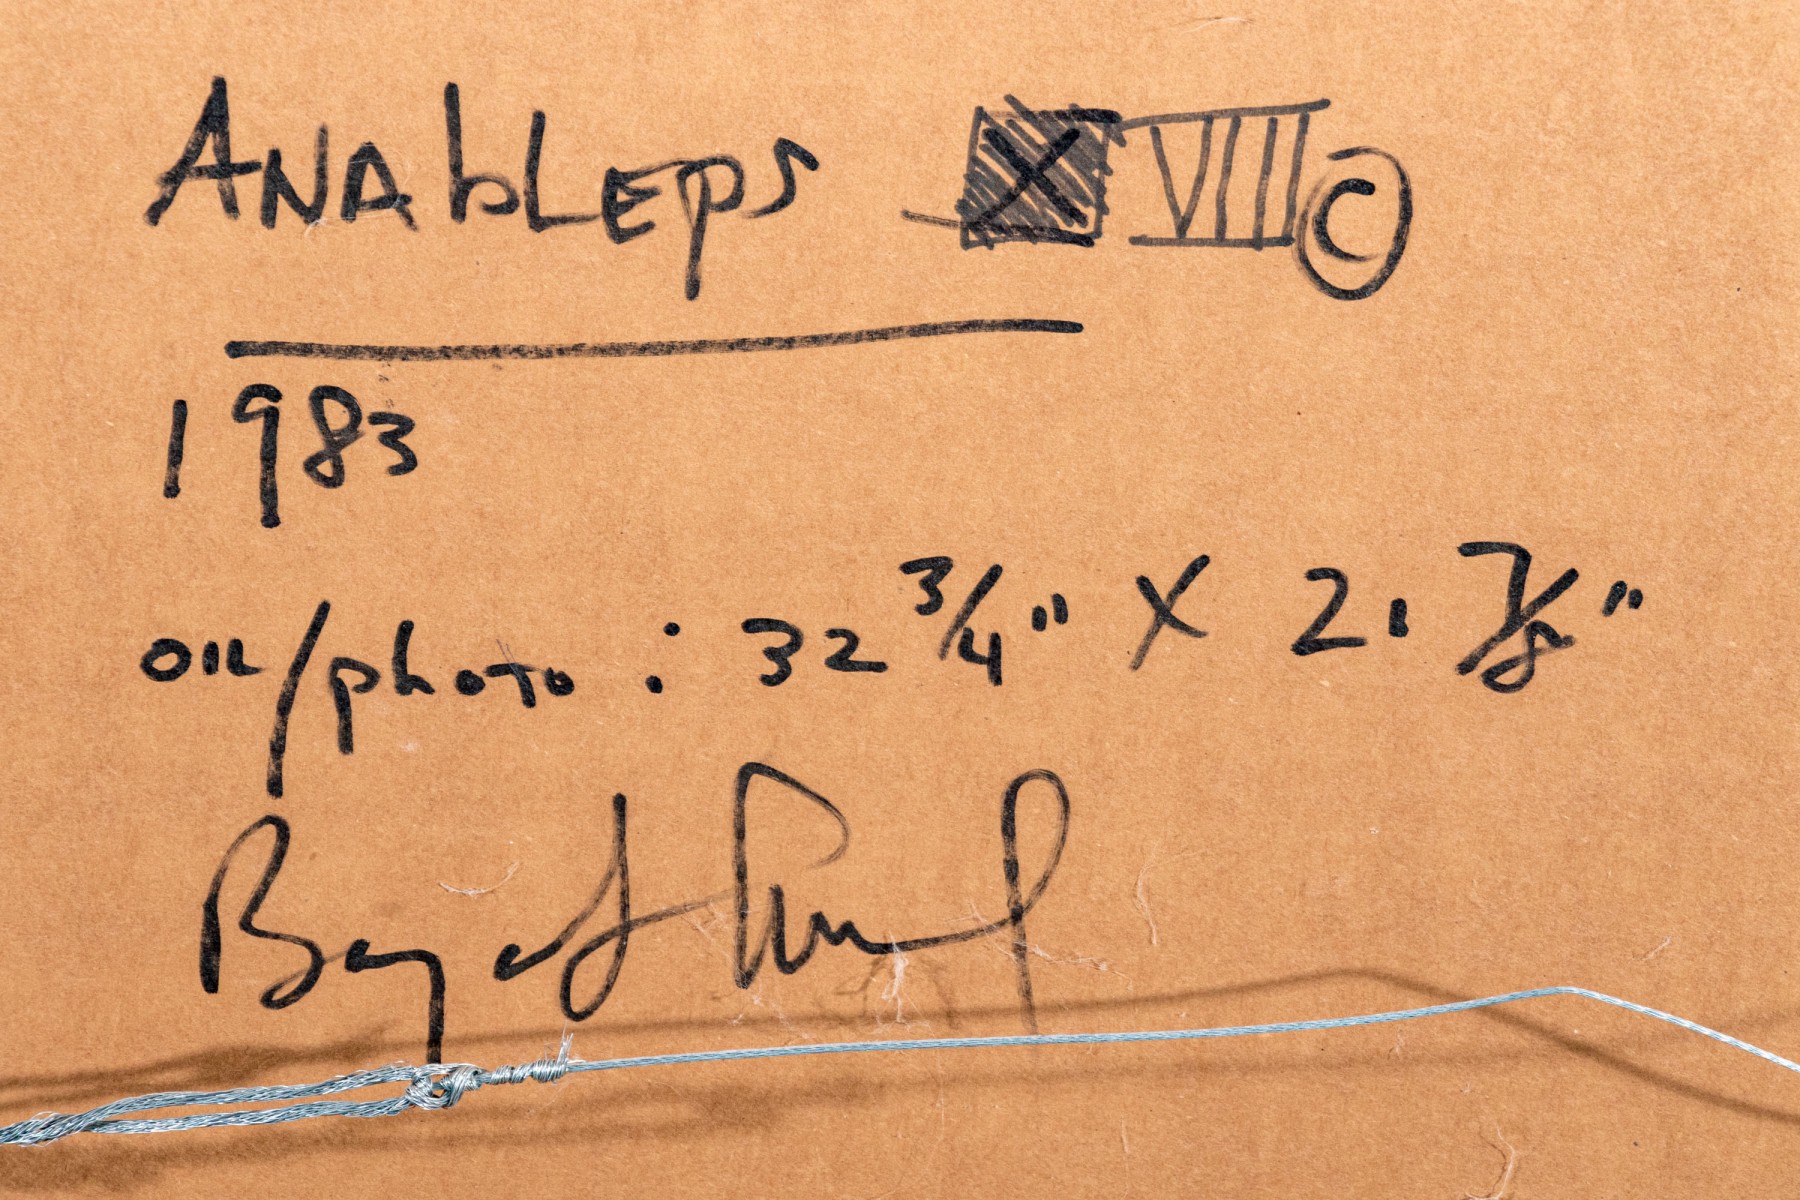 ANAbLEps VIII ©
1983
OIL/photo : 32 3/4" X 21 7/8"